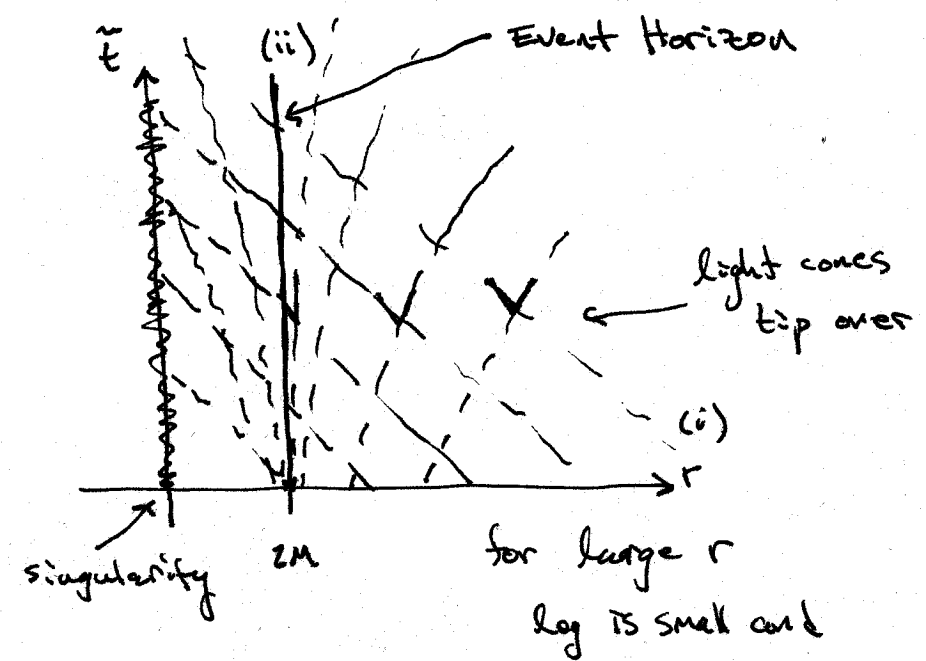 t̃
(ii)
Event Horizon
light cones
tip over
(i)
r
singularity
2M
for large r
log is small